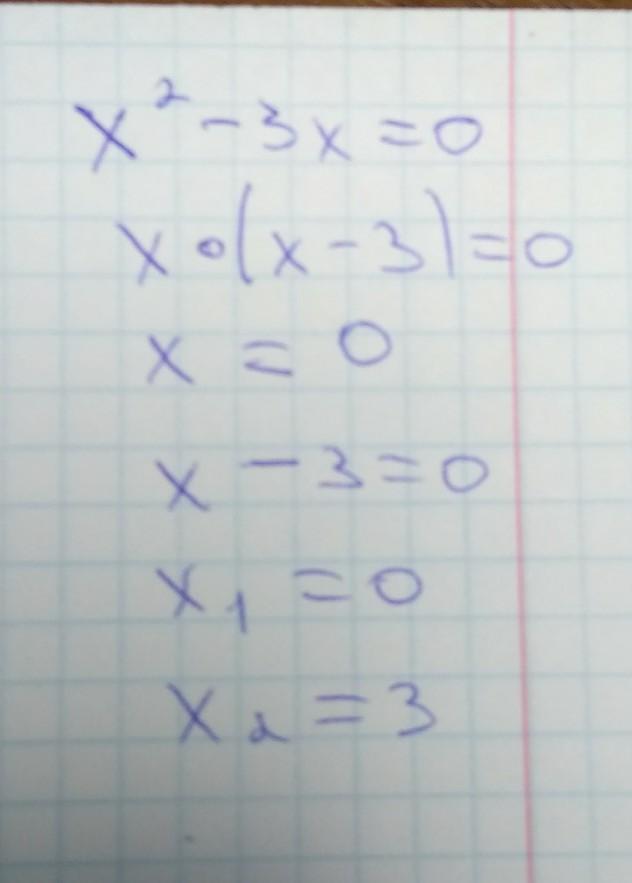 x² - 3x = 0
x · (x - 3) = 0
x = 0
x - 3 = 0
x₁ = 0
x₂ = 3